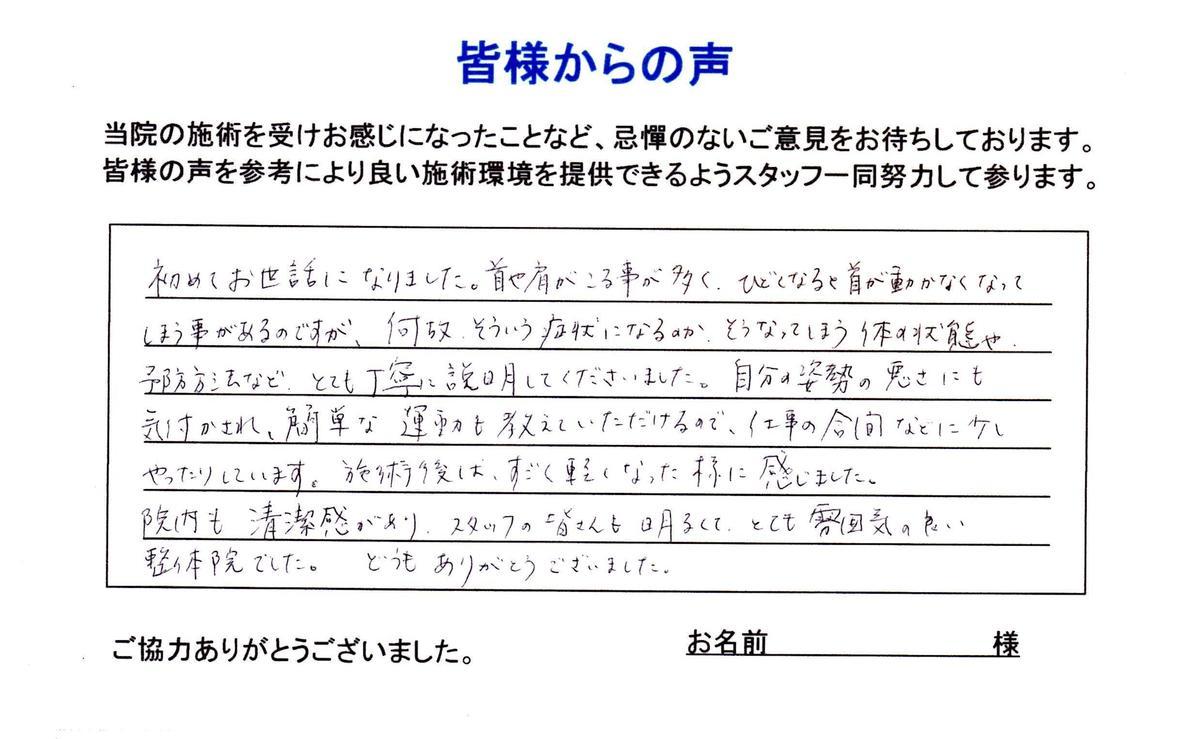 皆様からの声
当院の施術を受けお感じになったことなど、忌憚のないご意見をお待ちしております。
皆様の声を参考により良い施術環境を提供できるようスタッフ一同努力して参ります。
初めてお世話になりました。首や肩がこる事が多く、ひどくなると首が動かなくなって
しまう事があるのですが、何故、そういう症状になるのか、そうなってしまう体の状態や、
予防方法など、とても丁寧に説明してくださいました。自分の姿勢の悪さにも
気付かされ、簡単な運動も教えていただけるので、仕事の合間などに少し
やったりしています。施術後は、すごく軽くなった様に感じました。
院内も清潔感があり、スタッフの皆さんも明るくて、とても雰囲気の良い
整体院でした。 どうもありがとうございました。
ご協力ありがとうございました。
お名前 様